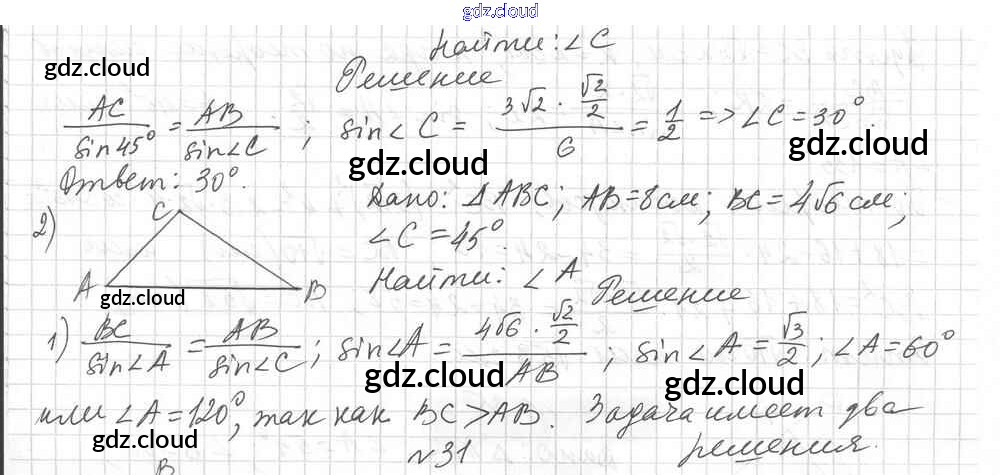 gdz.cloud
Найти: ∠C
gdz.cloud
Решение
AC/sin45° = AB/sin∠C ; sin∠C = (3√2 · √2/2)/6 = 1/2 => ∠C = 30°.
gdz.cloud
gdz.cloud
Ответ: 30°.
Дано: ΔABC; AB=8см; BC=4√6 см;
2)
C
∠C=45°.
A
B
gdz.cloud
Найти: ∠A
Решение
1) BC/sin∠A = AB/sin∠C ; sin∠A = (4√6 · √2/2)/AB ; sin∠A = √3/2 ; ∠A=60°
gdz.cloud
gdz.cloud
или ∠A=120°, так как BC>AB. Задача имеет два
gdz.cloud
решения.
№31
B